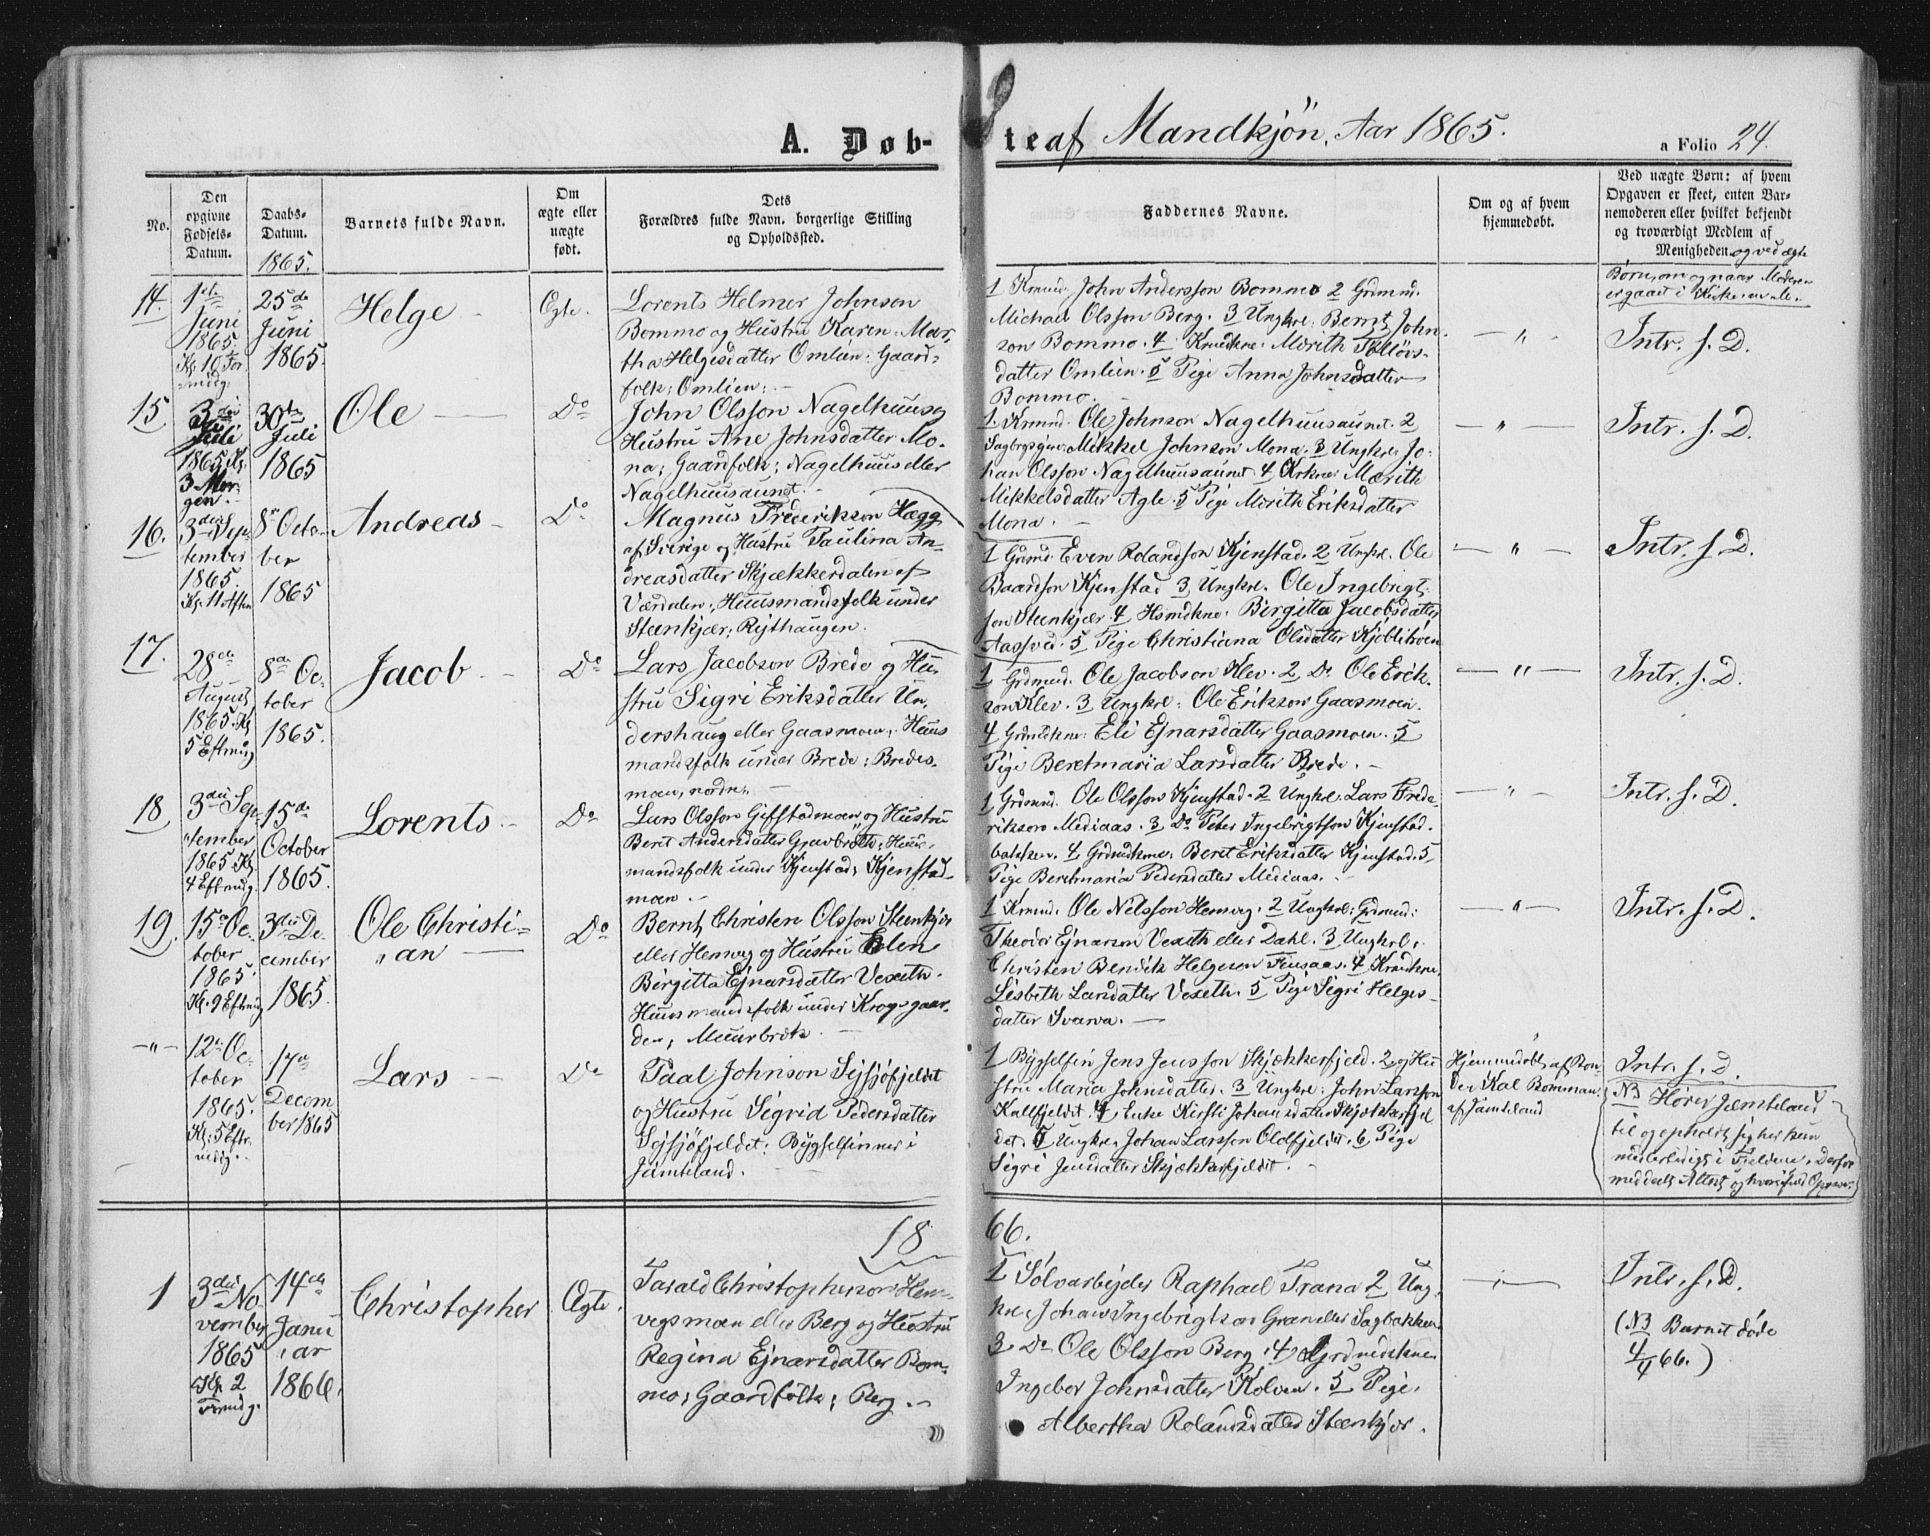 A. Døb-
te af Mandkjön, Aar 1865.
a Folio 24.
No.
Den
opgivne
Fødsels-
Datum.
Daabs-
Datum.
1865.
Barnets fulde Navn.
Om
ægte eller
uægte
født.
Dets
Forældres fulde Navn, borgerlige Stilling
og Opholdssted.
Faddernes Navne.
Om og af hvem
hjemmedøbt.
Ved uægte Børn: af hvem
Opgaven er skeet, enten Bar-
nemoderen eller hvilket bekjendt
og troværdigt Medlem af
Menigheden og ved ægte
Børn, om og naar Moderen
er gaaet i Kirke
14.
1ste
Juni
1865.
Kl. 10 For
midg.
25de
Juni
1865.
Helge -
Egte.
Lorents Helmer Johnson
Bommo og Hustru Karen Mar-
tha Helgesdatter Omlien: Gaard-
folk; Omlien; -
1 Kmnd. John Andersson Bommo 2 Grdmnd.
Michael Olsson Berg. 3 Ungkrl: Bernt John-
son Bommo. 4 Kmdkne: Marith
datter Omlien. 5 Pige Anna Johnsdatter
Bommo. -
— " —
Intr. s. D.
15.
3die
Juli
1865 Kl.
3 Mor-
gen. -
30te
Juli
1865
Ole —
Do
John Olsson Nagelhuus og
Hustru Ane Johnsdatter Mo-
na; Gaardfolk; Nagelhuus eller
Nagelhuusaunet. -
1. Kmnd. Ole Johnson Nagelhuusaunet. 2
Mikkel Johnson Mona. 3 Ungkrl. Jo-
han Olsson Nagelhuusaunet 4 Marith
Mikkelsdatter Agle. 5 Pige Marith Eriksdatter
Mona. -
— " —
Intr. s. D.
16.
3die Sep
tember
1865.
Kl. 11 Aften
8de Octo-
ber
1865
Andreas -
Do
Magnus Frederikson Hægg
af Sverige og Hustru Paulina An-
dreasdatter Skjækkerdalen af
Værdalen; Huusmandsfolk under
Steenkjær; Rÿthaugen.
1 Grdmd Even Rolandson Kjenstad. 2 Ungkrl. Ole
Baardson Kjenstad 3 Ungkrl. Ole Ingebrigt-
son Steenkjær 4 Hsmdkne. Birgitta Jacobsdatter
Aasved. 5 Pige Christiana Olsdatter
— " —
Intr. s. D.
17.
28de
August
1865. Kl
5 Eftmdg
8de Oc-
tober
1865.
Jacob -
Do
Lars Jacobson Brede og Hu-
stru Sigri Eriksdatter Un-
dershaug eller Gaasmoen; Huus
mandsfolk under Brede; Bredes-
moen, nordre. -
1 Grdmnd. Ole Jacobson Klev. 2 Do Ole Erik-
son Klev. 3 Ungkrl: Ole Erikson Gaasmoen.
4 Grdmdkne: Eli Ejnarsdatter Gaasmoen. 5
Pige Beretmaria Larsdatter Brede. -
— " —
Intr. s. D.
18.
3die Sep-
tember
1865. Kl
4 Eftmdg.
15de
October
1865.
Lorents -
Do
Lars Olsson Gifstadmoen og Hustru
Berit Andersdatter Gravbröth; Huus-
mandsfolk under Kjenstad; Kjenstad-
moen. -
1 Grdmnd. Ole Olsson Kjenstad. 2 Ungkrl. Lars Frede-
rikson Mediaas. 3 Do Peter Ingebrigtson Kjenstad-
bakken. 4 Grdmdkne: Beret Eriksdatter Kjenstad. 5
Pige Beretmaria Pedersdatter Mediaas. -
— " —
Intr. s. D.
19.
15de Oc-
tober
1865.
Kl. 9 Eftmdg
3die De-
cember
1865.
Ole Christi-
an —
Do
Bernt Christen Olsson Steenkjær
eller Hemveg og Hustru Elen
Birgitta Ejnarsdatter Vexeth.
Huusmandsfolk under Krogsgaar-
den; Muurbrok. -
1 Kmnd. Ole Nelsson Hemveg; 2 Ungkrl: Grdmnd:
Theodor Ejnarson Vexeth eller Dahl. 3 Ungkrl.
Christen Bendik Helgeson Fiusaas. 4 Kmdkne
Lisbeth Larsdatter Vexeth. 5 Pige Sigri Helges-
datter Svarva. —
— " —
Intr. s. D.
— " —
12te Oc-
tober
1865.
Kl: 5 Eftr-
midg. -
17de
Decem
ber 1865
Lars —
Do
Paal Johnson Sejsjöfjeldet
og Hustru Sigrid Pedersdatter
Sejsjöfjeldet: Bÿgselfinner i
Jämteland.
1 Bÿgselfin Jens Jensson Skjækkerfjeld. 2 og Hu
stru Maria Johnsdatter. 3 Ungkrl: John Larsson
Kallfjeldet. 4 Enke Kirsti Johansdatter Skjækkerfjel
det. 5 Ungkrl. Johan Larsson Oldfjeldet. 6 Pige
Sigri Jensdatter Skjækkerfjeldet. -
Hjemmedöbt af Bon-
den Kal Bomman
af Jämteland
Intr. s. D.
NB Hörer Jæmteland
til og opholdt sig her kun
midlertidigt i Fjeldene. Derfor
meddeelt Attest
18.
66.
1
3die No-
vember
1865
Kl. 2
Frmdg.
14de
Janu-
ar
1866.
Christopher
Ægte.
Tarald Christopherson Hem-
vegsmoen eller Berg og Hustru
Regina Ejnarsdatter Bom-
mo; Gaardfolk; Berg. -
1 Sölvarbejder Raphael Trana 2 Ung-
krl. Johan Ingebrigtson Granaeller Sagbakken
3 Do Ole Olsson Berg. 4 Grdmdskne
Ingebor Johnsdatter Kolven. 5 Pige.
Albertha Rolandsdatter Steenkjær.
— " —
Intr. s. D.
(NB Barnet döde
4/4 66.)